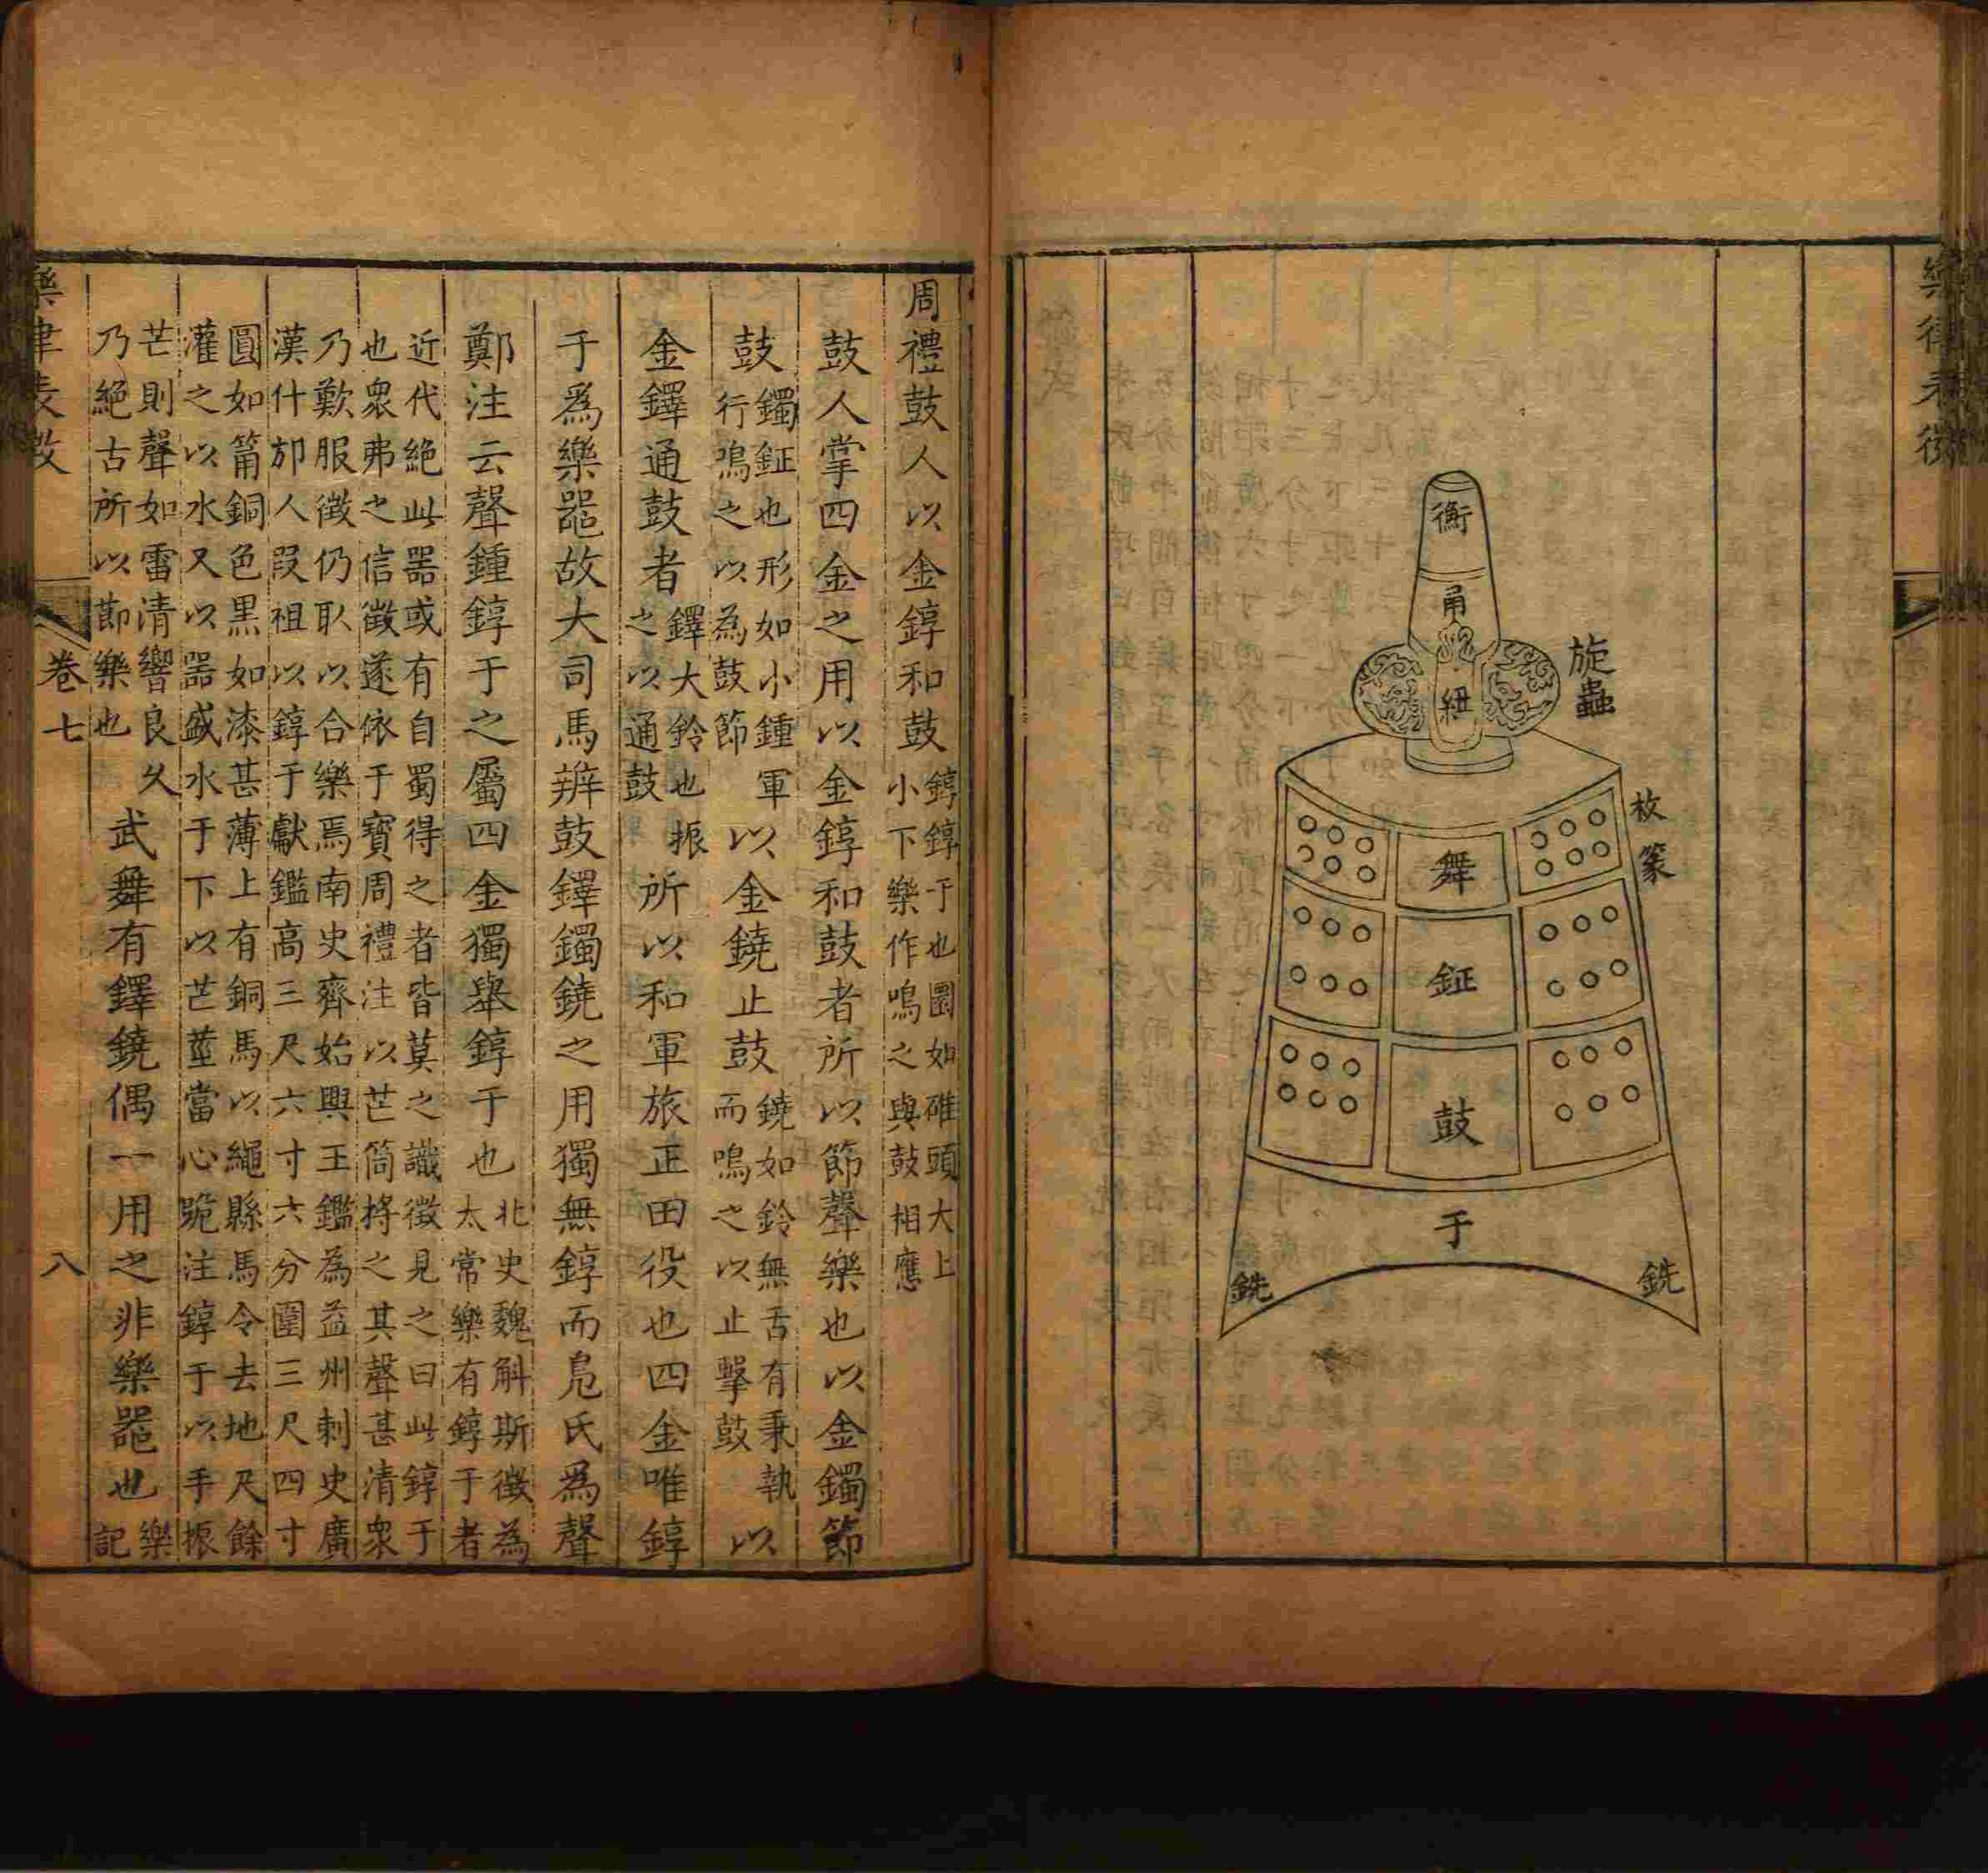 樂律表微
衡
甬
紐
旋蟲
枚
篆
舞
鉦
鼓
于
銑
銑
周禮鼓人以金錞和鼓
錞錞于也圜如碓頭大上
小下樂作鳴之與鼓相應
鼓人掌四金之用以金錞和鼓者所以節聲樂也以金鐲節
鼓
鐲鉦也形如小鍾軍
行鳴之以為鼓節
以金鐃止鼓
鐃如鈴無舌有秉執
而鳴之以止擊鼓
以
金鐸通鼓者
鐸大鈴也振
之以通鼓
所以和軍旅正田役也四金唯錞
于爲樂噐故大司馬辨鼓鐸鐲鐃之用獨無錞而凫氏爲聲
鄭注云聲鍾錞于之屬四金獨舉錞于也
北史魏斛斯徵為
太常樂有錞于者
近代絶此噐或有自蜀得之者皆莫之識徵見之曰此錞于
也衆弗之信徵遂依于寶周禮注以芒筒捋之其聲甚清衆
乃歎服徵仍取以合樂焉南史齊始興王鑑為益州刺史廣
漢什邡人段祖以錞于獻鑑高三尺六寸六分圍三尺四寸
圓如筩銅色黑如漆甚薄上有銅馬以繩縣馬令去地尺餘
灌之以水又以噐盛水于下以芒莖當心跪注錞于以手振
芒則聲如雷清響良久
乃絶古所以節樂也
武舞有鐸鐃偶一用之非樂噐也
樂
記
樂律表微
卷七
八